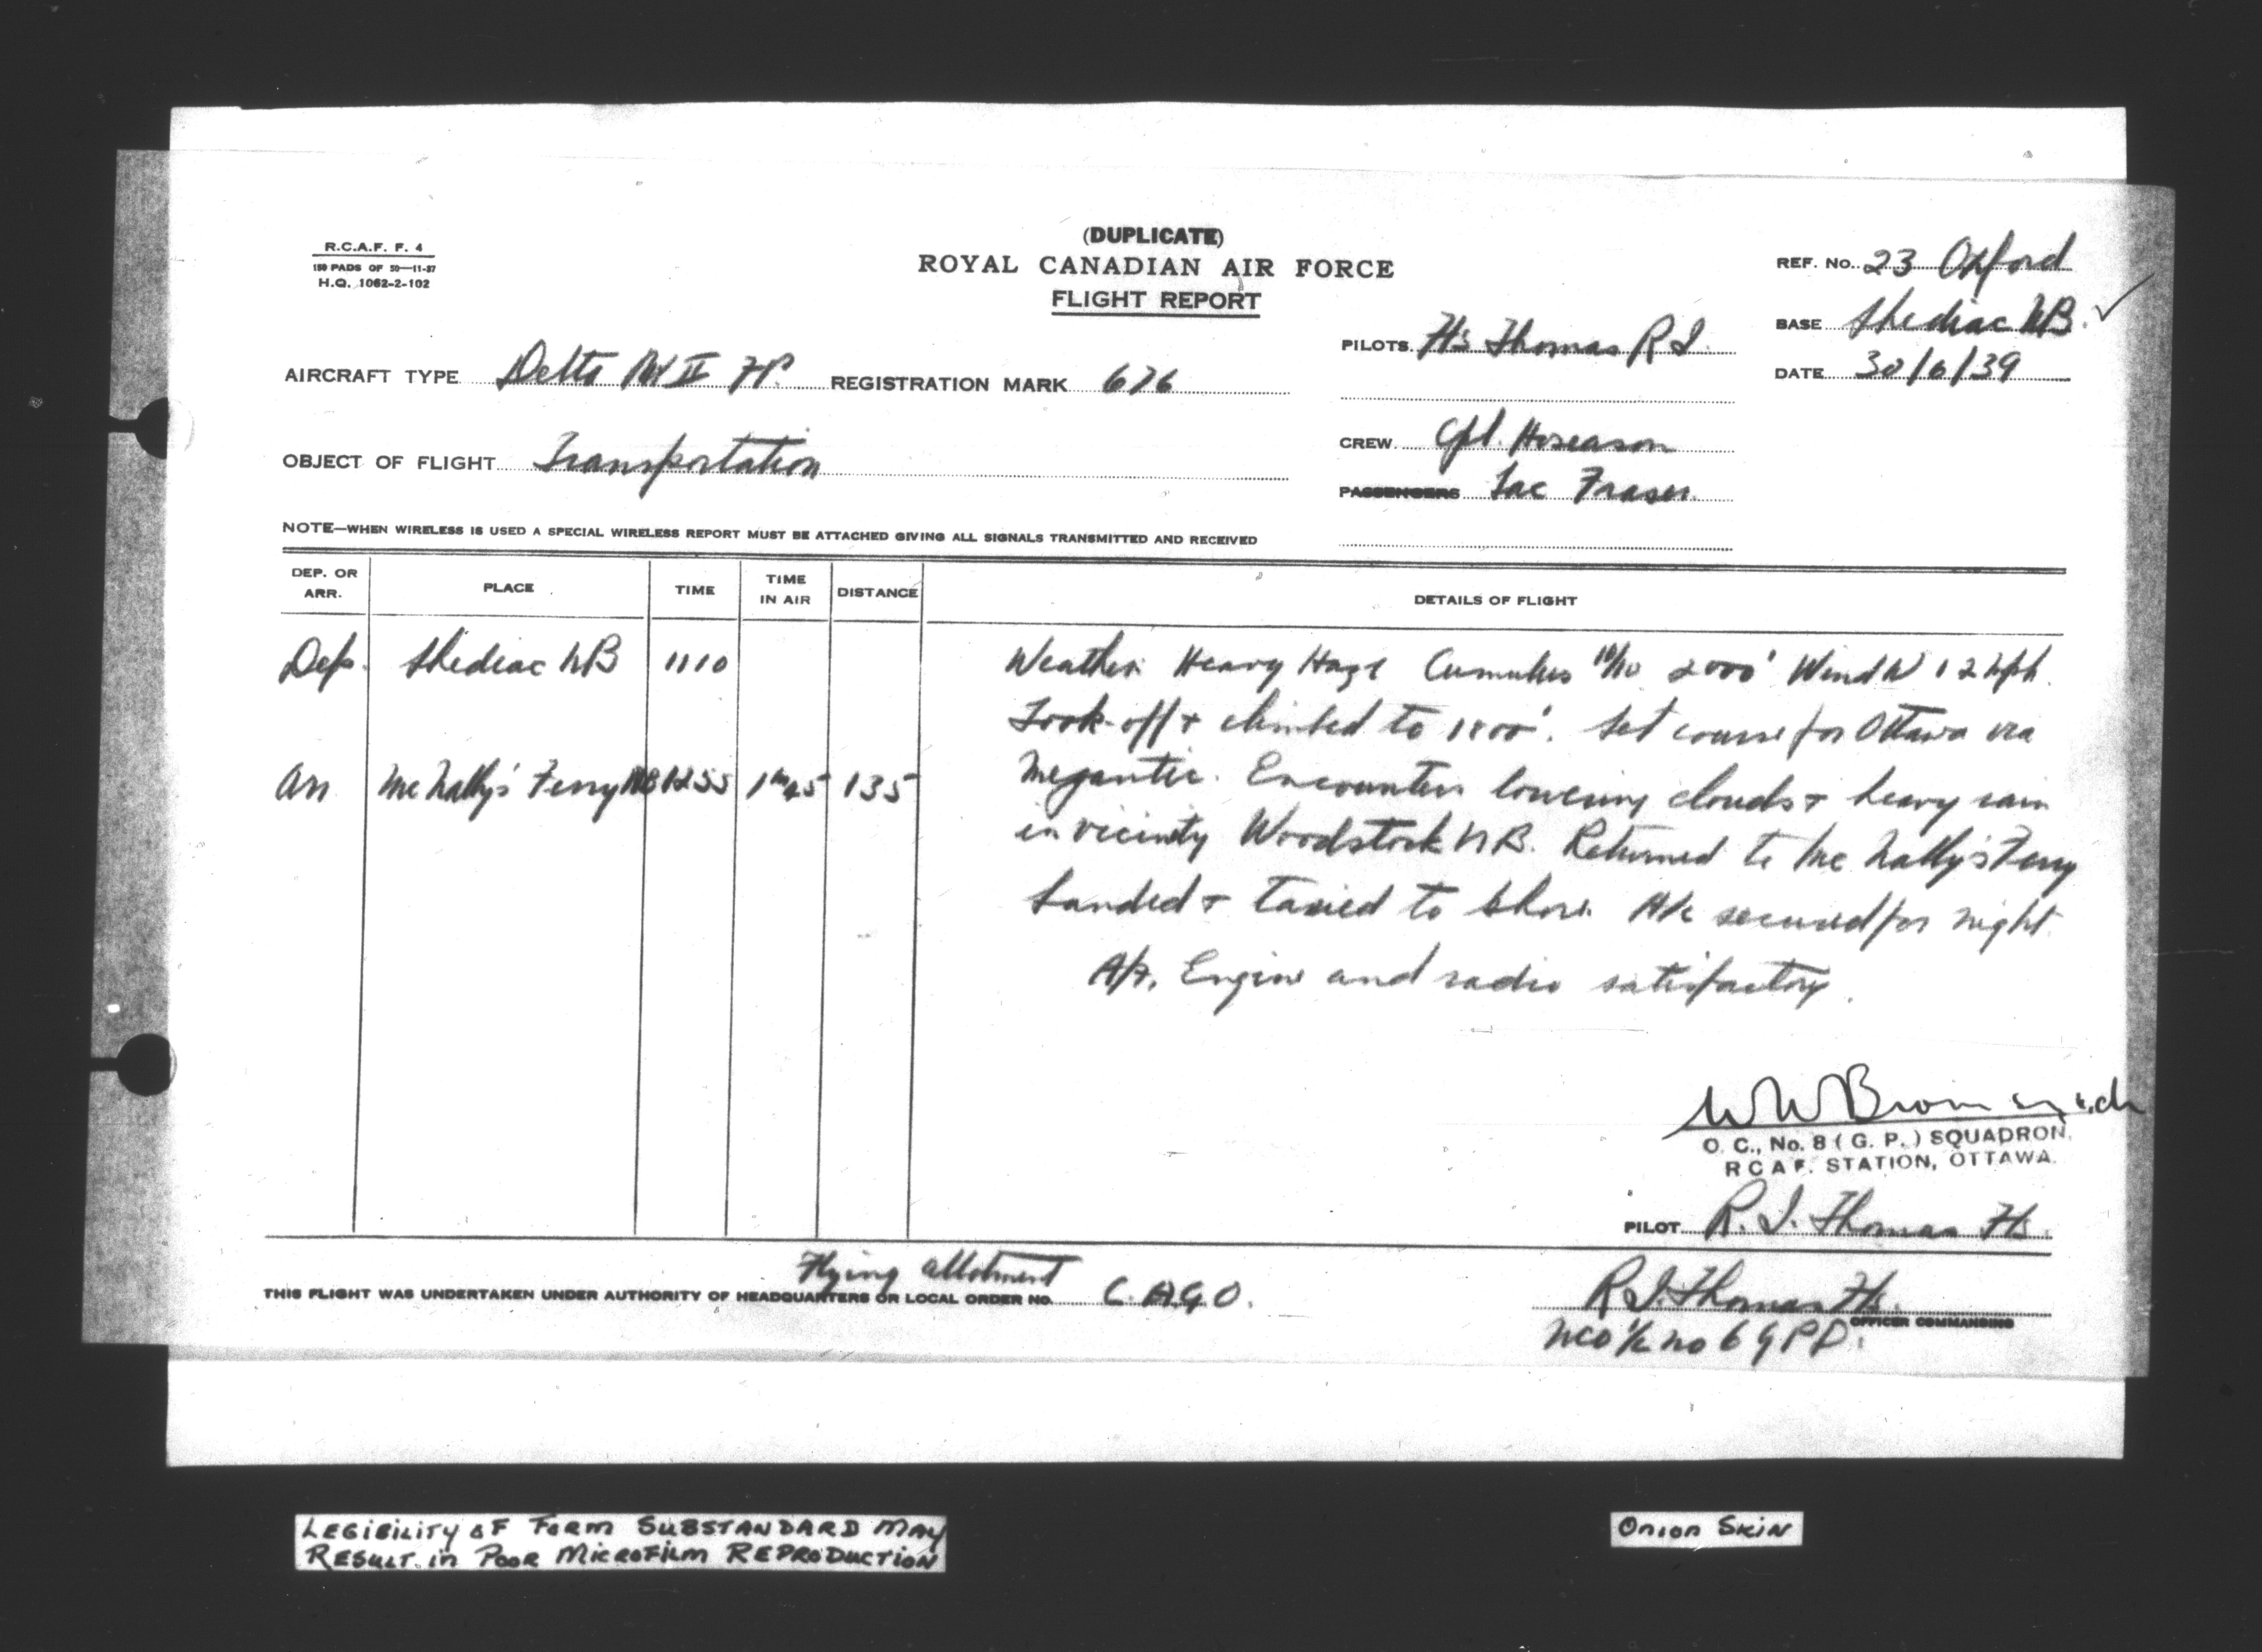 (DUPLICATE)
ROYAL CANADIAN AIR FORCE
FLIGHT REPORT
R.C.A.F. F. 4
150 PADS OF 50—11-37
H.Q. 1062-2-102
REF. No. 23 Oxford
BASE Shediac NB.
DATE 30/6/39
PILOTS F/s Thomas R I.
AIRCRAFT TYPE Delta Mk II FP. REGISTRATION MARK 676
CREW Cpl. Hoseason
OBJECT OF FLIGHT Transportation
PASSENGERS Lac Fraser.
NOTE—WHEN WIRELESS IS USED A SPECIAL WIRELESS REPORT MUST BE ATTACHED GIVING ALL SIGNALS TRANSMITTED AND RECEIVED
DEP. OR ARR. PLACE TIME TIME IN AIR DISTANCE DETAILS OF FLIGHT
Dep. Shediac NB 1110
Arr Mc Nally's Ferry NB 1255 1 45 135
Weather Heavy Haze Cumulus 10/10 2000' Wind W 12 mph.
Took-off & climbed to 1800'. Set course for Ottawa via
Megantic. Encounters lowering clouds & heavy rain
in vicinty Woodstock NB. Returned to Mc Nally's Ferry
Landed & taxied to shore A/c secured for night.
A/F, Engine and radio satisfactory.
W W B
O. C., No. 8 ( G. P. ) SQUADRON,
R C A F. STATION, OTTAWA.
PILOT R. I. Thomas F/s.
Flying allotment
THIS FLIGHT WAS UNDERTAKEN UNDER AUTHORITY OF HEADQUARTERS OR LOCAL ORDER No. C. A.G O.
R I. Thomas F/s.
OFFICER COMMANDING
NCO i/c no 6 G P D.
LEGIBILITY OF FORM SUBSTANDARD MAY
RESULT in POOR MICROFILM REPRODUCTION
ONION SKIN